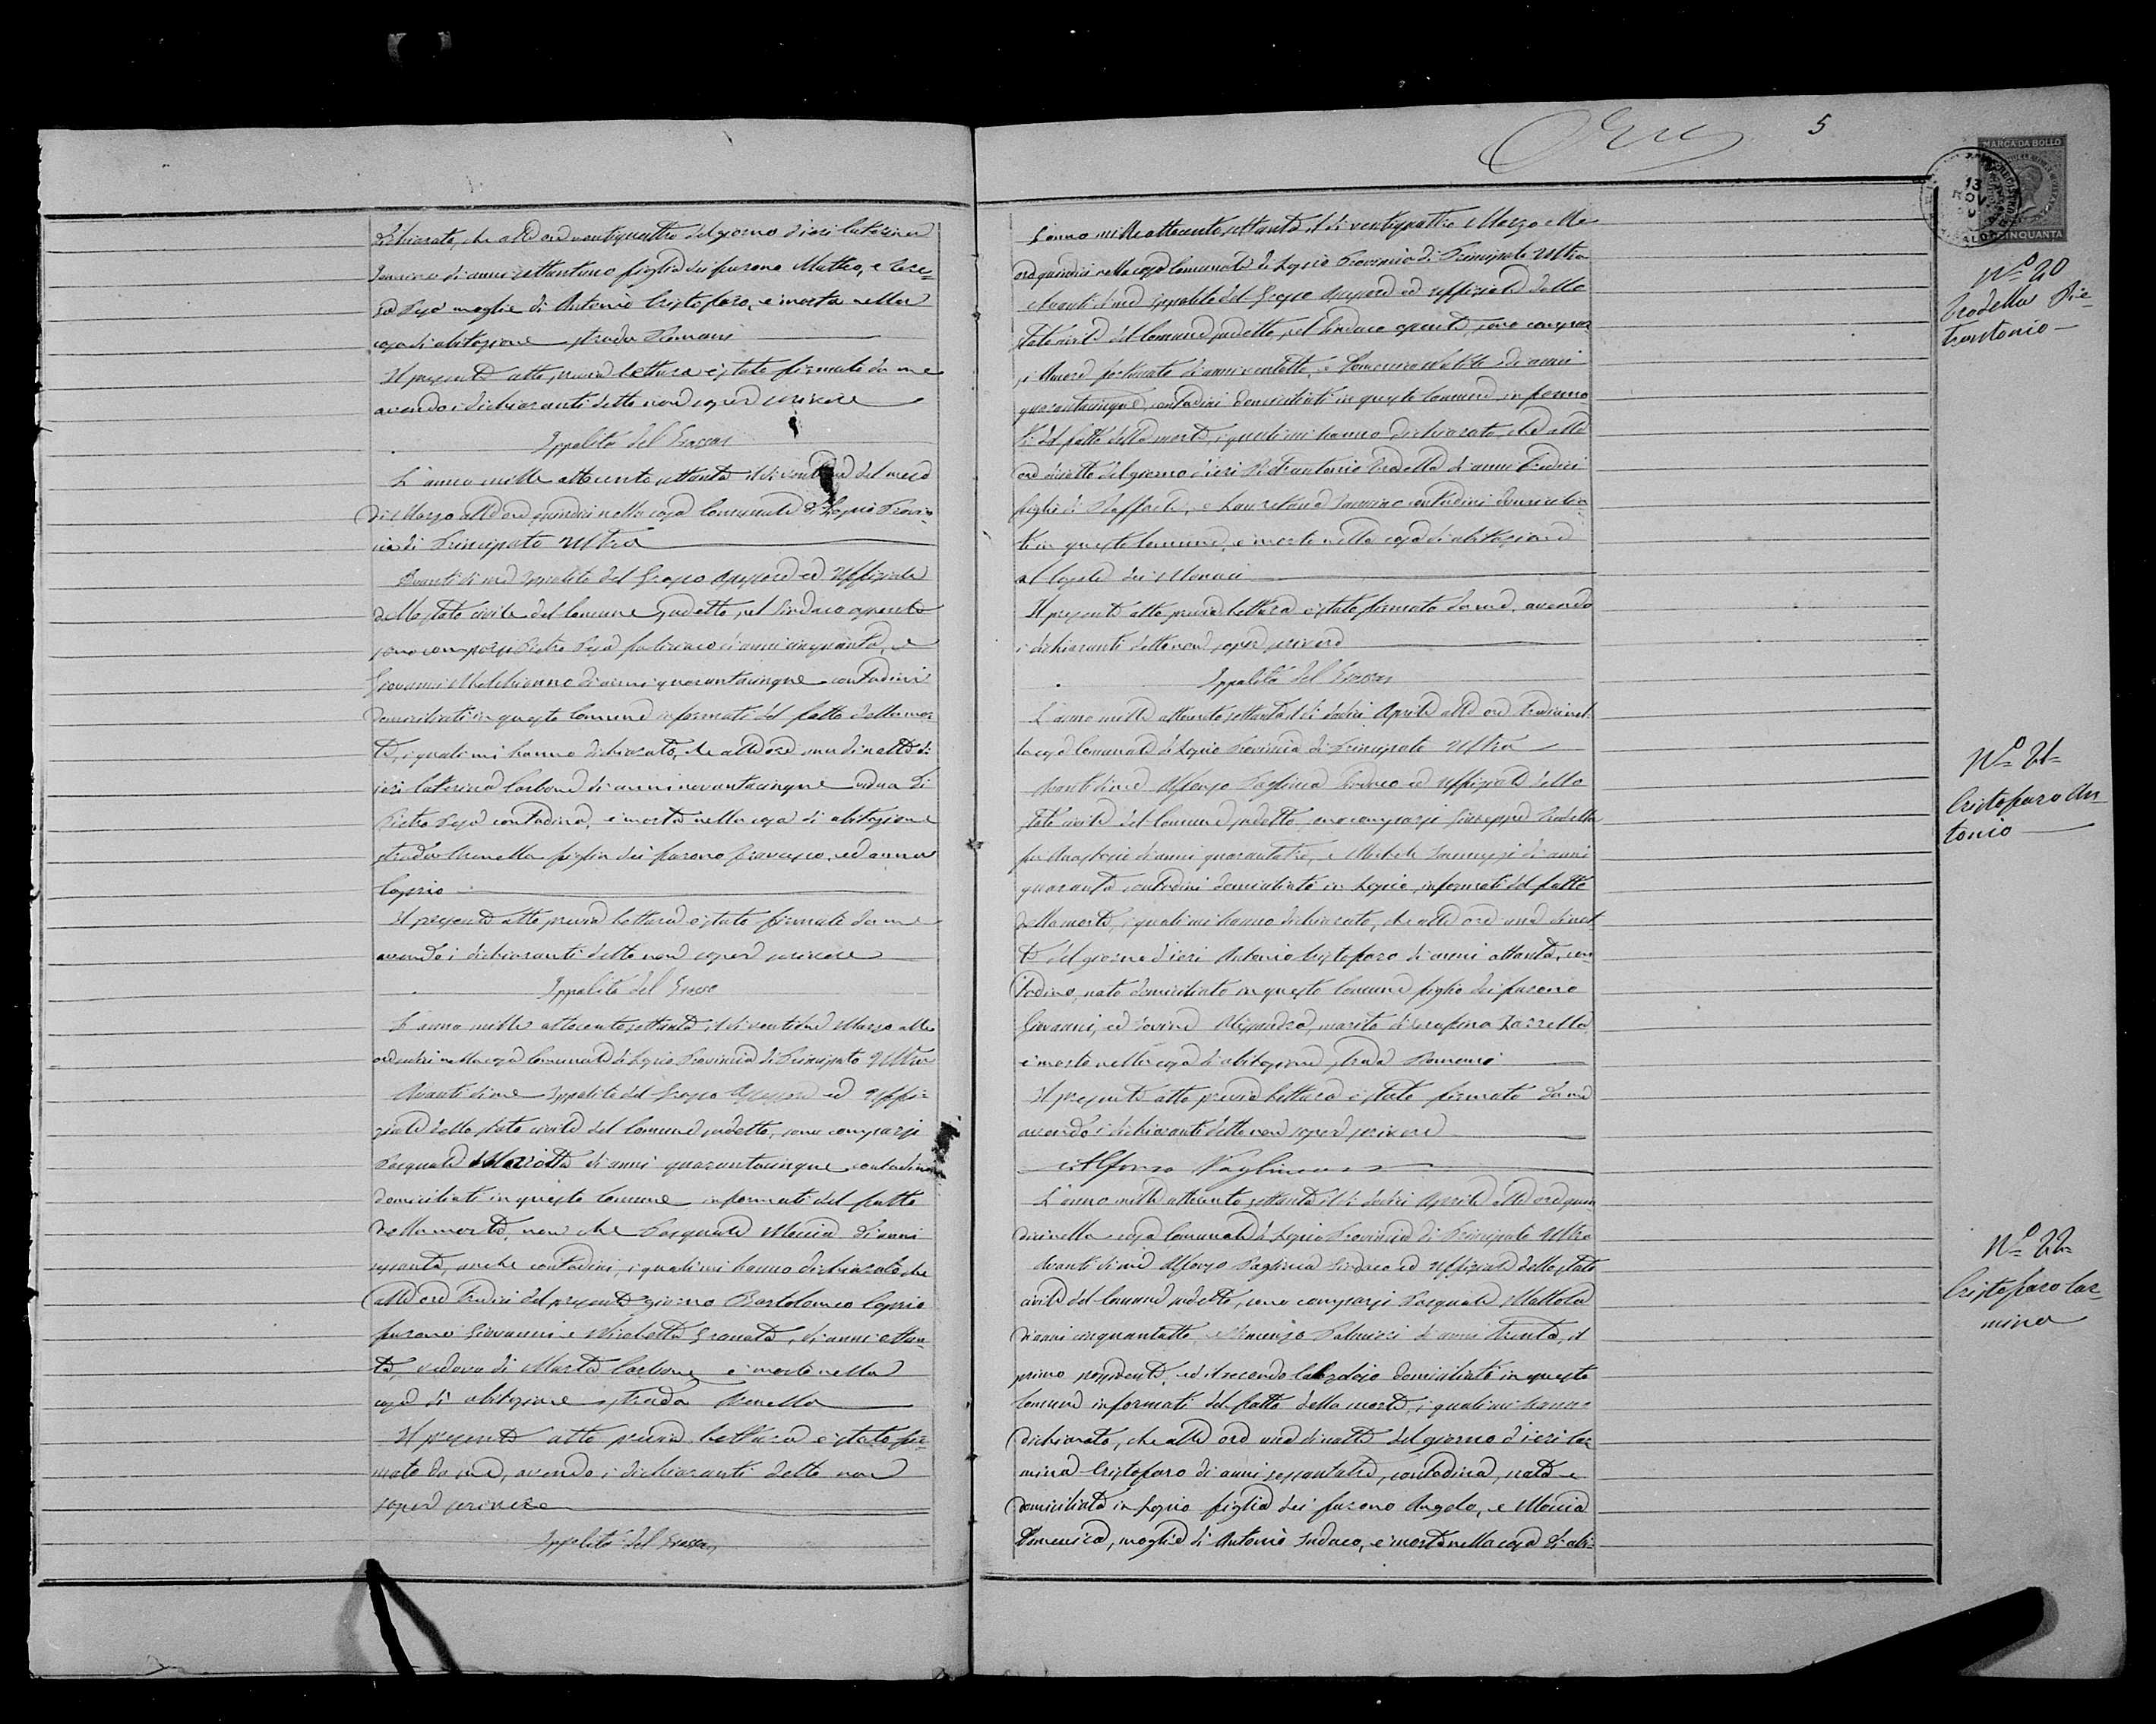 dichiarato, che alle ore ventiquattro del giorno d'ieri Caterina
Iannino di anni settantuno figlia dei furono Matteo, e Tere-
sa Pesa moglie di Antonio Cristofaro, è morta nella
casa di abitazione strada Romani
Il presente atto, previa lettura è stato firmato da me
avendo i dichiaranti detto non saper scrivere
Ippolito del Grosso
L'anno mille ottocento settanta il dì del mese
di Marzo alle ore quindici nella casa Comunale di Lapio Provin-
cia di Principato Ultra
Avanti di me Ippolito del Grosso Assessore ed Uffiziale
dello stato civile del Comune sudetto, pel Sindaco assente
sono comparsi Pietro Pesa di anni cinquanta, e
Giovanni di anni quarantacinque contadini
domiciliati in questo Comune informati del fatto della mor-
te, i quali mi hanno dichiarato, che alle ore una di notte di
ieri Caterina Carbone di anni novantacinque vedua di
Pietro Pesa contadina, è morta nella casa di abitazione
strada Arenella figlia dei furono Francesco, ed Anna
Caprio
Il presente atto previa lettura è stato firmato da me
avendo i dichiaranti detto non saper scrivere
Ippolito del Grosso
L'anno mille ottocento settanta, il dì Marzo alle
ore nella casa Comunale di Lapio Provincia di Principato Ultra
Avanti di me Ippolito del Grosso Assessore ed Uffi-
ziale dello stato civile del Comune sudetto, sono comparsi
Pasquale di anni quarantacinque contadino
domiciliati in questo Comune informati del fatto
della morte, non che Pasquale Moccia di anni
sessanta, anche contadini, i quali mi hanno dichiarato che
alle ore tredici del presente giorno Bartolomeo Caprio
furono Giovanni e Granata, di anni ottan-
ta, vedovo di Marta Carbone è morto nella
casa di abitazione strada Arenella
Il presente atto previa lettura è stato fir-
mato da me, avendo i dichiaranti detto non
saper scrivere
Ippolito del Grosso
5
MARCA DA BOLLO
13
NOV
CINQUANTA
L'anno mille ottocento settanta il dì ventiquattro Marzo alle
ore quindici nella casa Comunale di Lapio Provincia di Principato Ultra
Avanti di me Ippolito del Grosso Assessore ed Uffiziale dello
stato civile del Comune sudetto, pel Sindaco assente, sono compar-
si fortunato di anni ventotto, e Domenico di anni
quarantacinque, contadini domiciliati in questo Comune, informa-
ti del fatto della morte, i quali mi hanno dichiarato, che alle
ore diciotto del giorno d'ieri Pietrantonio Trodella di anni tredici
figlio di Raffaele, e Iannino contadini domicilia-
ti in questo Comune, è morto nella casa di abitazione
al Casale dei Monaci
Il presente atto previa lettura è stato firmato da me, avendo
i dichiaranti detto non saper scrivere
Ippolito del Grosso
L'anno mille ottocento settanta il dì dodici Aprile alle ore tredici nel-
la casa Comunale di Lapio Provincia di Principato Ultra
Avanti di me Alfonso Paglinca Sindaco ed Uffiziale dello
stato civile del Comune sudetto, sono comparsi Giuseppe Trodella
fu Anastasio di anni quarantatre, e Michele di anni
quaranta contadini domiciliati in Lapio, informati del fatto
della morte, i quali mi hanno dichiarato, che alle ore una di not-
te del giorno d'ieri Antonio Cristofaro di anni ottanta, con-
tadino, nato domiciliato in questo Comune figlio dei furono
Giovanni, ed marito di Serafina Zarrella
è morto nella casa di abitazione strada Romani
Il presente atto previa lettura è stato firmato da me
avendo i dichiaranti detto non saper scrivere
Alfonso Paglinca
L'anno mille ottocento settanta il dì dodici Aprile alle ore quin-
dici nella casa Comunale di Lapio Provincia di Principato Ultra
Avanti di me Alfonso Paglinca Sindaco ed Uffiziale dello stato
civile del Comune sudetto, sono comparsi Pasquale Mattola
di anni cinquantotto, e Vincenzo Palmieri di anni trenta, il
primo possidente, ed il secondo Calzolaio domiciliati in questo
Comune informati del fatto della morte, i quali mi hanno
dichiarato, che alle ore una di notte del giorno d'ieri Car-
mina Cristofaro di anni sessantatre, contadina, nata e
domiciliata in Lapio figlia dei furono Angelo, e Moccia
Domenica, moglie di Antonio Sudaco, è morta nella casa di abi-
N.º 20
Trodella Pie-
trantonio
N.º 21
Cristofaro An-
tonio
N.º 22
Cristofaro Car-
mina